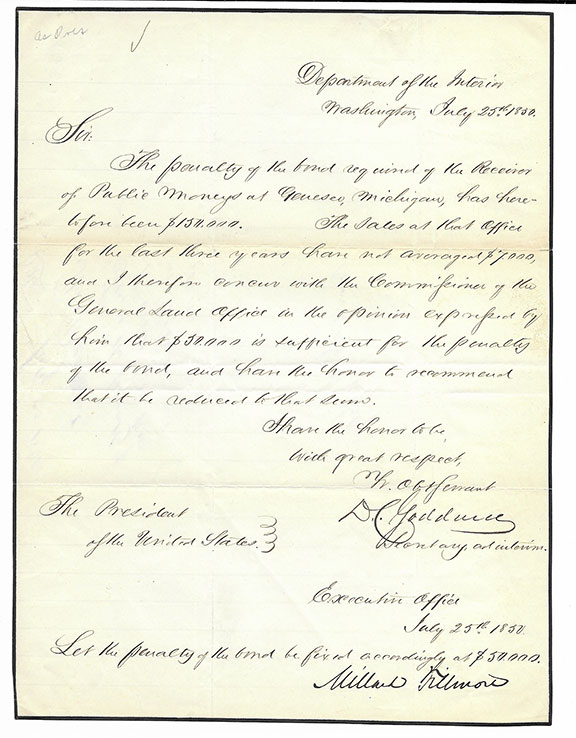 Department of the Interior
Washington, July 25th 1850.
Sir:
The penalty of the bond required of the Receiver
of Public Moneys at Genesee, Michigan, has here-
tofore been $150.000. The sales at that Office
for the last three years have not averaged $7000,
and I therefore concur with the Commissioner of the
General Land Office in the opinion expressed by
him that $50.000 is sufficient for the penalty
of the bond, and have the honor to recommend
that it be reduced to that sum.
I have the honor to be,
With great respect,
Yr. Obt Servant
D. C. Goddard
Secretary ad interim.
The President
of the United States.
Executive Office
July 25th 1850.
Let the penalty of the bond be fixed accordingly at $50.000.
Millard Fillmore